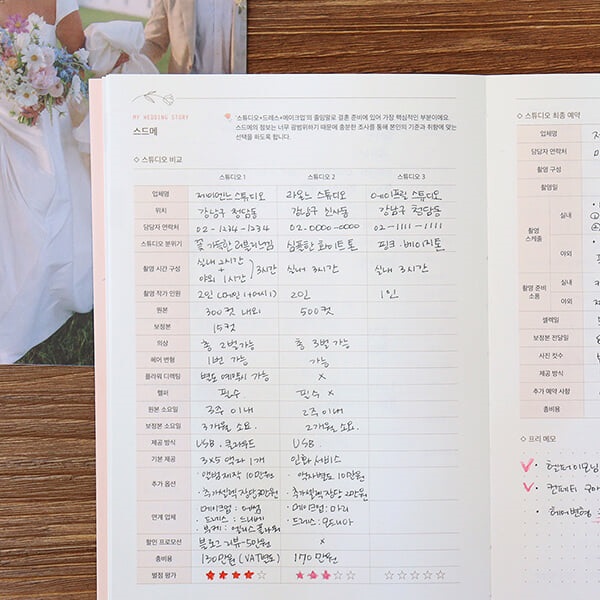 MY WEDDING STORY
스드메
스튜디오+드레스+메이크업'의 줄임말로 결혼 준비에 있어 가장 핵심적인 부분이에요.
스드메의 정보는 너무 광범위하기 때문에 충분한 조사를 통해 본인의 기준과 취향에 맞는
선택을 하도록 합니다.
◇ 스튜디오 비교
스튜디오 1 스튜디오 2 스튜디오 3
업체명 제이앤느 스튜디오 라온느 스튜디오 에이프릴 스튜디오
위치 강남구 청담동 강남구 신사동 강남구 청담동
담당자 연락처 02-1234-1234 02-0000-0000 02-1111-1111
스튜디오 분위기 꽃 가득한 러블리느낌 심플한 화이트톤 핑크·베이지톤
촬영 시간 구성 실내 2시간 + 야외 1시간 3시간 실내 3시간 실내 3시간
촬영 작가 인원 2인 (메인1+어시1) 2인 1인
원본 300컷 내외 500컷
보정본 15컷
의상 총 2벌 가능 총 3벌 가능
헤어 변형 1번 가능 가능
플라워 디렉팅 별도 예약시 가능 ×
헬퍼 필수 필수 ×
원본 소요일 3주 이내 2주 이내
보정본 소요일 3개월 소요 2개월 소요
제공 방식 USB. 클라우드 USB.
기본 제공 3×5 액자 1개 인화 서비스
추가 옵션 · 앨범제작 10만원 · 액자별도 10만원
· 추가셀렉 장당 3만원 · 추가셀렉 장당 2만원
연계 업체 메이크업: 메이크업: 마리
· 드레스: · 드레스: 모드니아
부케:
할인 프로모션 블로그 리뷰-5만원 ×
총비용 130만원 (VAT별도) 170만원
별점 평가 ★★★★☆ ★★★☆☆ ☆☆☆☆☆
◇ 스튜디오 최종 예약
업체명
담당자 연락처
촬영 구성
촬영일
촬영 스케줄 실내
야외
촬영 준비 소품 실내
야외
셀렉일
보정본 전달일
사진 컷수
제공 방식
추가 예약 사항
총비용
◇ 프리 메모
· 헬퍼이모님
· 컨페티
· 헤어변형